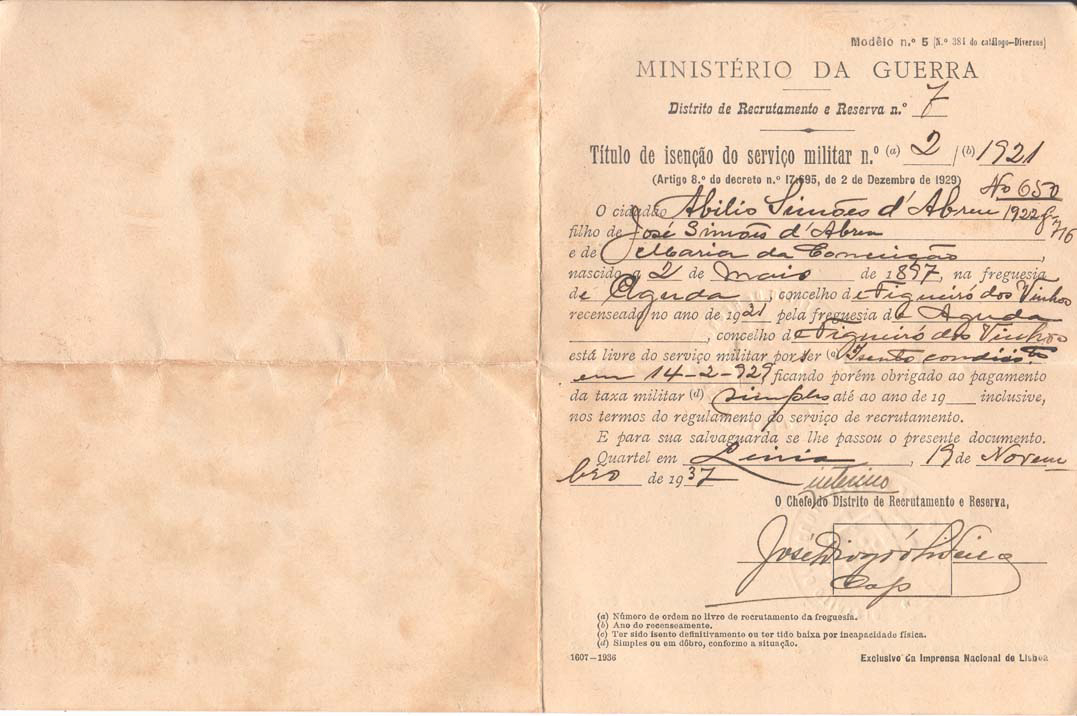 Modêlo n.º 5 (N.º 384 do catálogo—Diversos)
MINISTÉRIO DA GUERRA
Distrito de Recrutamento e Reserva n.º 7
Título de isenção do serviço militar n.º (a) 2 / (b) 1921
(Artigo 8.º do decreto n.º 17:695, de 2 de Dezembro de 1929) No 650
O cidadão Abilio Simões d'Abreu 1922
filho de José Simões d'Abreu 716
e de Maria da Conceição,
nascido a 2 de maio de 1897, na freguesia
de Aguda, concelho de Figueiró dos Vinhos
recenseado no ano de 1921 pela freguesia de Aguda
, concelho de Figueiró dos Vinhos
está livre do serviço militar por ser (c) Isento
em 14-2-929 ficando porém obrigado ao pagamento
da taxa militar (d) simples até ao ano de 19 inclusive,
nos termos do regulamento do serviço de recrutamento.
E para sua salvaguarda se lhe passou o presente documento.
Quartel em Leiria, 19 de Novem
bro de 1937
interino
O Chefe do Distrito de Recrutamento e Reserva,
José
Cap
(a) Número de ordem no livro de recrutamento da freguesia.
(b) Ano do recenseamento.
(c) Ter sido isento definitivamente ou ter tido baixa por incapacidade física.
(d) Simples ou em dôbro, conforme a situação.
1607—1936 Exclusivo da Imprensa Nacional de Lisboa